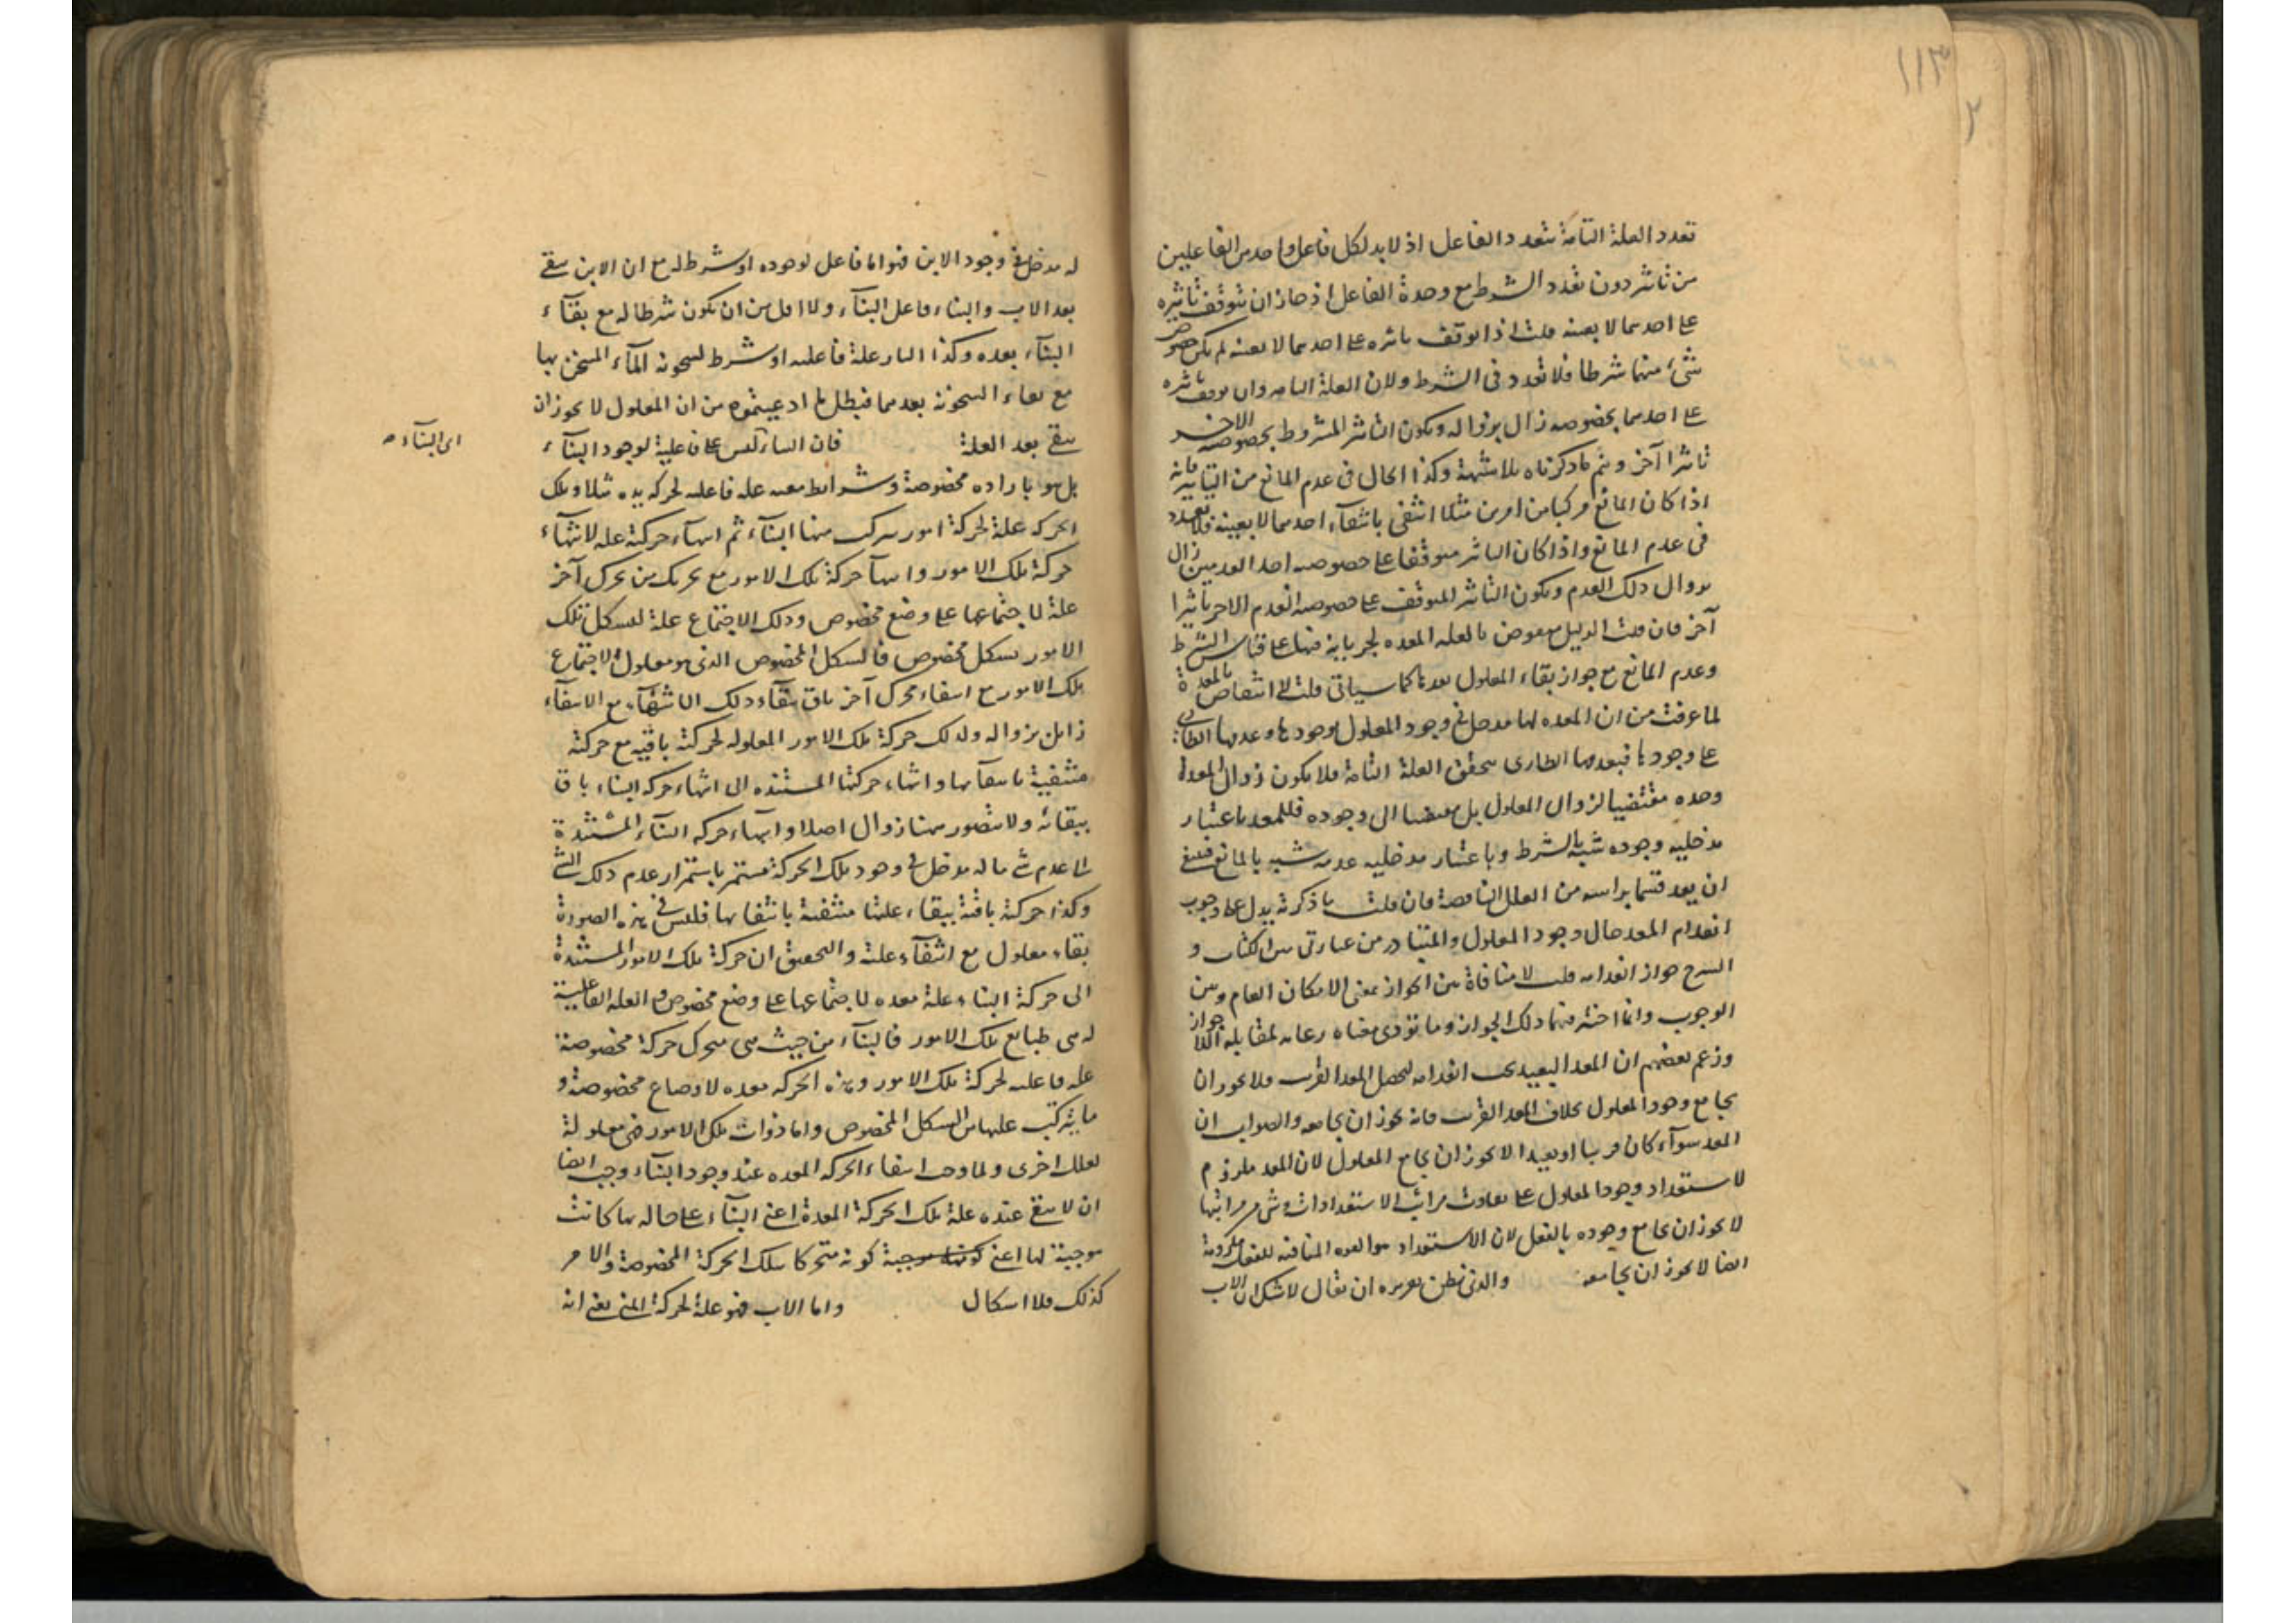 ١١٣
٢
تعدد العلة التامة بتعدد الفاعل اذ لا بد لكل فاعل واحد من الفاعلين
من تاثير دون تعدد الشرط مع وحدة الفاعل اذ جاز ان يتوقف تاثيره
على احدهما لا بعينه قلت اذا توقف تاثيره على احدهما لا بعينه لم يكن خصوص
شيء منهما شرطا فلا تعدد في الشرط ولان العلة التامة وان توقف تاثيره
على احدهما بخصوصه زال بزواله ويكون التاثير المشروط بخصوصه الاخر
تاثيرا آخر ويتم ما ذكرناه بلا شبهة وكذا الحال في عدم المانع من التاثير فانه
اذا كان المانع مركبا من امرين مثلا انتفى بانتفاء احدهما لا بعينه فلا تعدد
في عدم المانع واذا كان التاثير متوقفا على خصوصه احد العدمين زال
بزوال ذلك العدم ويكون التاثير المتوقف على خصوصه العدم الاخر تاثيرا
آخر فان قلت الدليل معوض بالعلة المعدة لجريانه فيها على قياس الشرط
وعدم المانع مع جواز بقاء المعلول بعدها كما سياتي قلت لا انتقاض بالمعدة
لما عرفت من ان المعدة لها مدخل في وجود المعلول بوجودها وعدمها الطاري
على وجودها فبعدمها الطاري يتحقق العلة التامة فلا يكون زوال المعدة
وحده مقتضيا لزوال المعلول بل مفضيا الى وجوده فللمعد باعتبار
مدخلية وجوده شبه بالشرط وباعتبار مدخلية عدمه شبه بالمانع فينبغي
ان يعد قسما براسه من العلل الناقصة فان قلت ما ذكرته يدل على وجوب
انعدام المعد حال وجود المعلول والمتبادر من عبارتي من الكتاب و
الشرح جواز انعدامه قلت لا منافاة بين الجواز بمعنى الامكان العام وبين
الوجوب وانما اختير فيهما ذلك الجواز وما يؤدي معناه رعاية لمقابلة اللاجواز
وزعم بعضهم ان المعد البعيد يجب انعدامه لتحصل المعد القريب فلا يجوز ان
يجامع وجود المعلول بخلاف المعد القريب فانه يجوز ان يجامعه والصواب ان
المعد سوآء كان قريبا او بعيدا لا يجوز ان يجامع المعلول لان المعد ملزوم
لاستعداد وجود المعلول على تفاوت مراتب الاستعدادات وشيء من مراتبها
لا يجوز ان يجامع وجوده بالفعل لان الاستعداد هو القوة المنافية للفعل فملزومه
ايضا لا يجوز ان يجامعه والذي نظن تعريره ان يقال لا شك ان الاب
له مدخل في وجود الابن فهو اما فاعل لوجوده او شرط له مع ان الابن يبقى
بعد الاب والبناء فاعل البنآء ولا اقل من ان يكون شرطا له مع بقآء
البنآء بعده وكذا النار علة فاعلية او شرط لسخونة المآء المسخن بها
مع بقاء السخونة بعدهما فبطل ما ادعيتموه من ان المعلول لا يجوز ان
يبقى بعد العلة فان البناء ليس علة فاعلية لوجود البنآء
اى البنآء
بل هو بارادة مخصوصة وشرايط معينة علة فاعلية لحركة يده مثلا وتلك
الحركة علة لحركة امور يتركب منها البنآء ثم انتهآء حركته علة لانتهآء
حركة تلك الامور وانتهآ حركة تلك الامور مع تحريك من محرك آخر
علة لاجتماعها على وضع مخصوص وذلك الاجتماع علة لتشكل تلك
الامور بشكل مخصوص فالشكل المخصوص الذي هو معلول الاجتماع
تلك الامور مع انتفاء محرك آخر باق ببقآء ذلك الانتهآء مع الانتفآء
زايل بزواله وكذلك حركة تلك الامور المعلولة لحركته باقية مع حركته
منتفية بانتفآئها وانتهاء حركتها المستندة الى انتهاء حركة البناء باق
ببقائه ولا يتصور ههنا زوال اصلا وانتهآء حركة البنآء المستندة
الى عدم شيء ما له مدخل في وجود تلك الحركة مستمر باستمرار عدم ذلك الشيء
وكذا حركته باقية ببقاء علتها منتفية بانتفائها فليس في هذه الصورة
بقاء معلول مع انتفآء علته والتحقيق ان حركة تلك الامور المستندة
الى حركة البناء علة معدة لاجتماعها على وضع مخصوص والعلة الفاعلية
له هي طبايع تلك الامور فالبنآء من حيث هي متحرك حركة مخصوصة
علة فاعلية لحركة تلك الامور وهذه الحركة معدة لاوضاع مخصوصة و
ما يترتب عليها من الشكل المخصوص واما ذوات تلك الامور فهي معلولة
لعلل اخرى ولما وجب انتفاء الحركة المعدة عند وجود البنآء وجب ايضا
ان لا يبقى عنده علة تلك الحركة المعدة اعني البنآء على حاله بها كانت
موجبة لها اعني كونها موجبة كونه متحركا بتلك الحركة المخصوصة والامر
كذلك فلا اشكال واما الاب فهو علة لحركة المني يعني انه